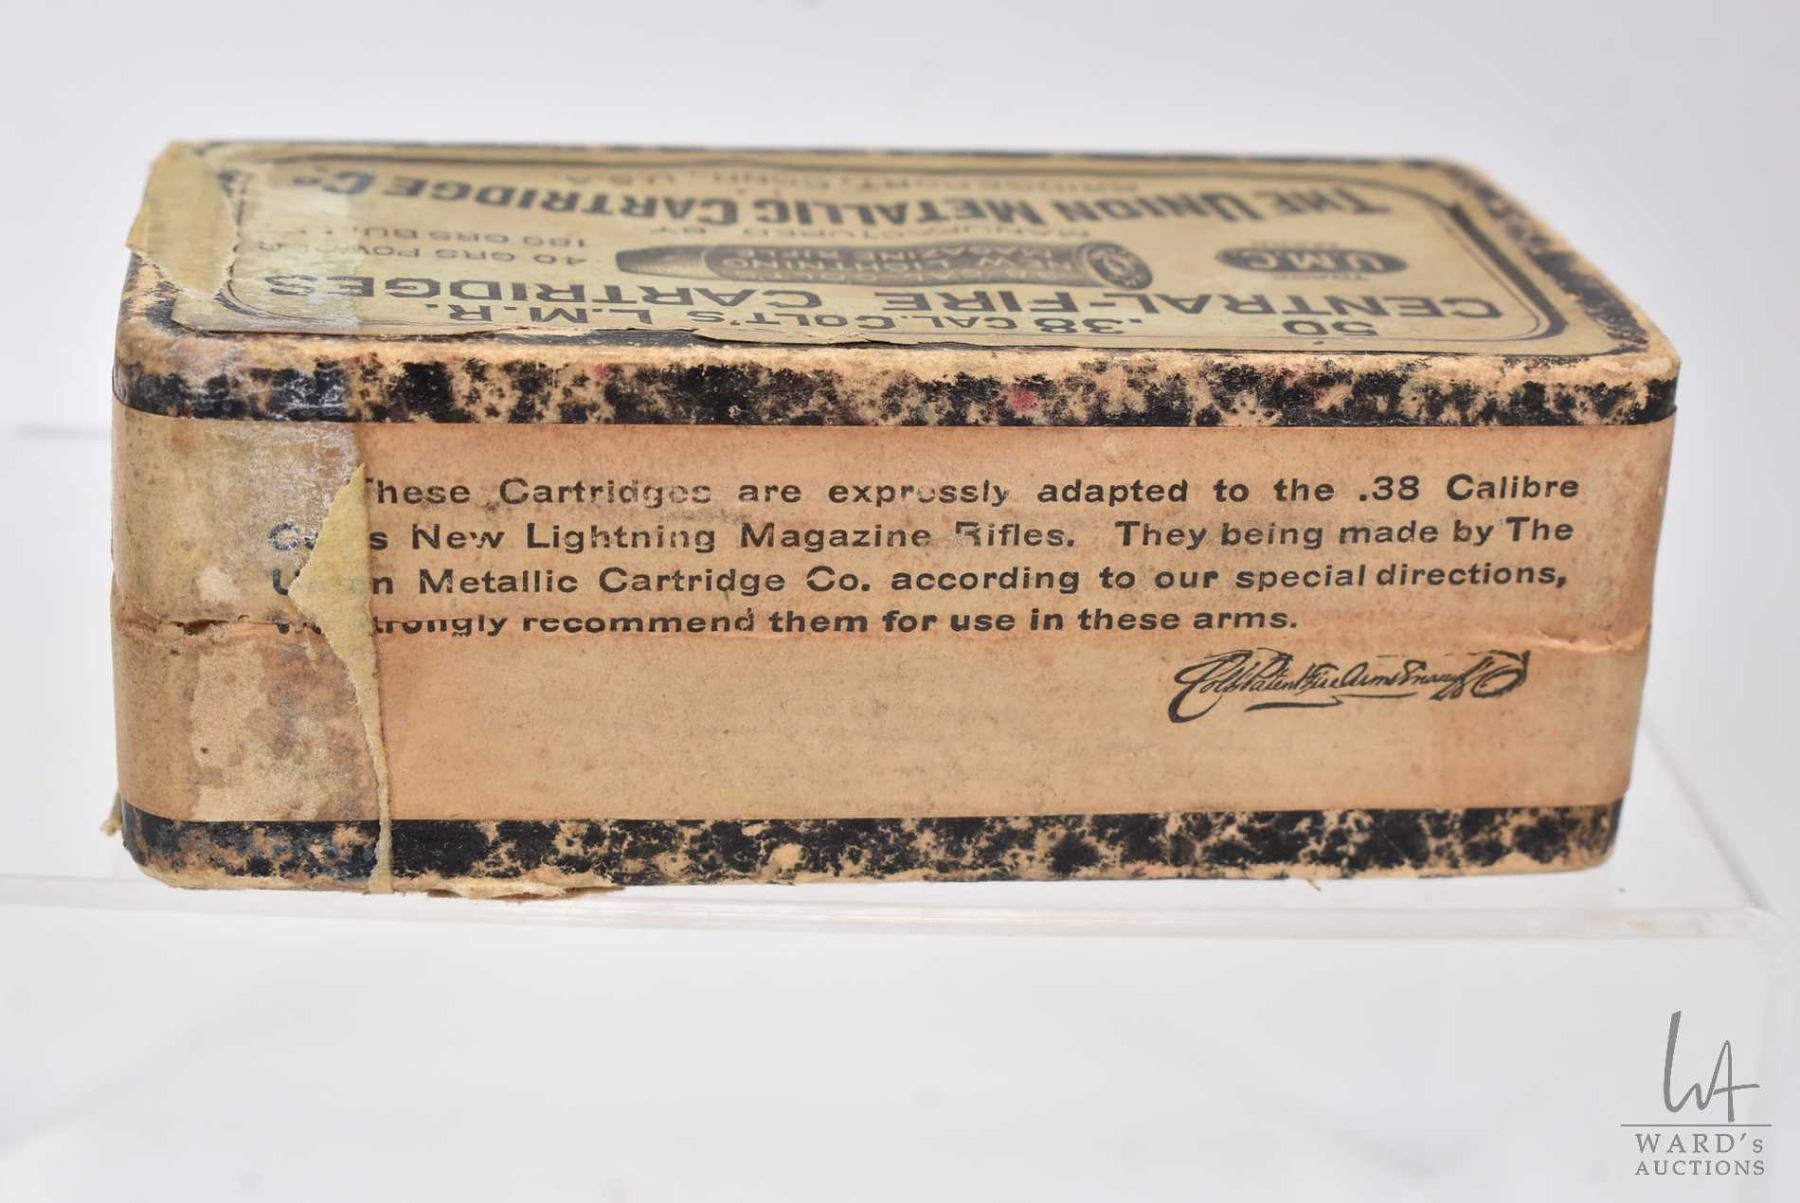 50 .38 CAL. COLT'S L.M.R.
CENTRAL-FIRE CARTRIDGES
U.M.C.
NEW LIGHTNING
MAGAZINE RIFLE
40 GRS
180 GRS
MANUFACTURED BY
THE UNION METALLIC CARTRIDGE Co.
BRIDGEPORT, CONN., U.S.A.
These Cartridges are expressly adapted to the .38 Calibre
s New Lightning Magazine Rifles. They being made by The
Metallic Cartridge Co. according to our special directions,
strongly recommend them for use in these arms.
Colt's Patent Fire Arms Manuf'g Co
WARD's
AUCTIONS